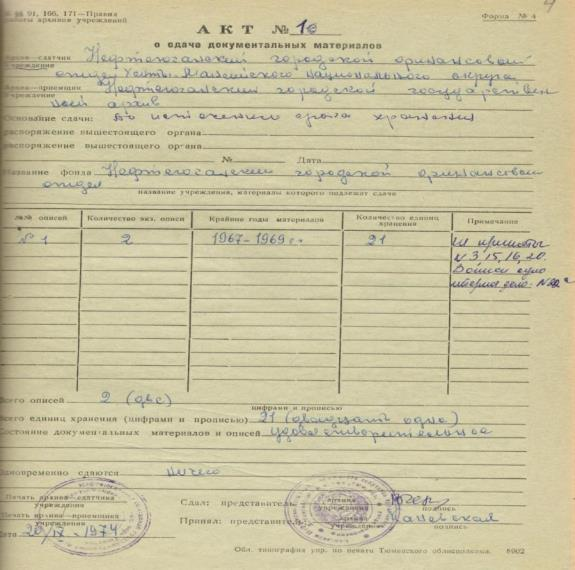 №№ 91, 166, 171—Правил
работы архивов учреждений
Форма № 4
4
АКТ № 10
о сдаче документальных материалов
Архив-сдатчик Нефтеюганский городской финансовый
учреждение отдел Ханты-Мансийского национального округа
Архив-приемщик Нефтеюганский городской государствен
учреждение ный архив
Основание сдачи: по истечении срока хранения
распоряжение вышестоящего органа
распоряжение вышестоящего органа
№ Дата
Название фонда Нефтеюганский городской финансовый
отдел
название учреждения, материалы которого подлежат сдаче
№№ описей Количество экз. описи Крайние годы материалов Количество единиц хранения Примечание
№ 1 2 1967-1969 гг 21 Не приняты
N 3, 15, 16, 20.
дело: N22
Всего описей 2 (две)
цифрами и прописью
Всего единиц хранения (цифрами и прописью) 21 (двадцать одно)
Состояние документальных материалов и описей удовлетворительное
Одновременно сдаются ничего
Печать архива-сдатчика
учреждения
Сдал: представитель архива
учреждения
подпись
Печать архива-приемщика
учреждения
Принял: представитель архива
учреждения
подпись
Дата 20/IX-1974
Обл. типография упр. по печати Тюменского облисполкома. 8902